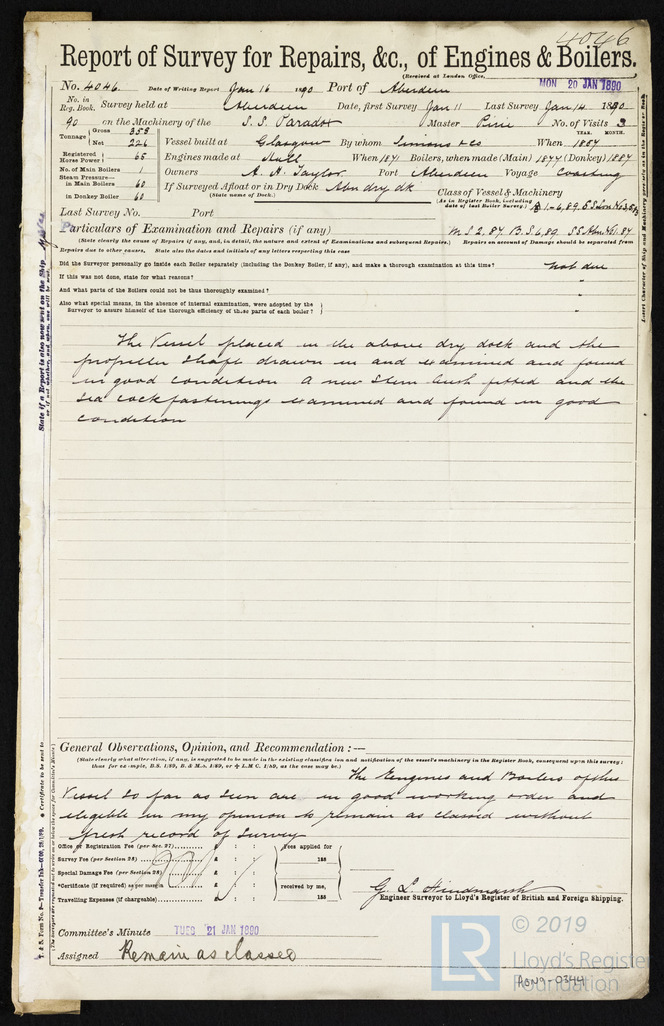 4046
Report of Survey for Repairs, &c., of Engines & Boilers.
(Received at London Office,
MON 20 JAN 1890
No. 4046 Date of Writing Report Jan 16 1890 Port of Aberdeen
No. in Reg. Book. Survey held at Aberdeen Date, first Survey Jan 11 Last Survey Jan 14 1890
90 on the Machinery of the S.S. Paradox Master Pirie No. of Visits 3
YEAR. MONTH.
Tonnage Gross 358
Net 226 Vessel built at Glasgow By whom Simons & Co When
Registered Horse Power 65 Engines made at Hull When 1871 Boilers, when made (Main) 1877 (Donkey) 1887
No. of Main Boilers 1 Owners A. A. Taylor Port Aberdeen Voyage Coasting
Steam Pressure—
in Main Boilers 60 If Surveyed Afloat or in Dry Dock Abn dry dk
(State name of Dock.)
in Donkey Boiler 60
Class of Vessel & Machinery
(As in Register Book, including date of last Boiler Survey.)
Last Survey No. Port
Particulars of Examination and Repairs (if any) M.S 2.87 B.S 6,89
(State clearly the cause of Repairs if any, and, in detail, the nature and extent of Examinations and subsequent Repairs.) Repairs on account of Damage should be separated from
Repairs due to other causes. State also the dates and initials of any letters respecting this case
Did the Surveyor personally go inside each Boiler separately (including the Donkey Boiler, if any), and make a thorough examination at this time? not due
If this was not done, state for what reasons? "
And what parts of the Boilers could not be thoroughly examined? "
Also what special means, in the absence of internal examination, were adopted by the
Surveyor to assure himself of the thorough efficiency of those parts of each boiler? "
The Vessel placed in the above dry dock and the
propeller shaft drawn in and examined and found
in good condition A new stern bush fitted and the
sea cock fastenings examined and found in good
condition
General Observations, Opinion, and Recommendation :—
(State clearly what alteration, if any, is suggested to be made in the existing classification and notification of the vessel's machinery in the Register Book, consequent upon this survey;
thus for example, B.S. 1/89, B. & M.S. 1/89, or L.M.C. 1/89, as the case may be.)
The Engines and Boilers of this
Vessel so far as seen are in good working order and
eligible in my opinion to remain as classed without
fresh record of Survey
Office or Registration Fee (per Sec. 27) £ : : Fees applied for
Survey Fee (per Section 28) £ : : 188
Special Damage Fee (per Section 28) £ : :
*Certificate (if required) as per margin £ : : received by me,
Travelling Expenses (if chargeable) £ : : 188
G. L. Hindmarsh
Engineer Surveyor to Lloyd's Register of British and Foreign Shipping.
Committee's Minute TUES 21 JAN 1890
Assigned Remain as classed
State if a Report is also now sent on the Ship
or if not whether, and when, one will be sent.
Insert Character of Ship and Machinery precisely as in the Register Book.
* Certificate to be sent to
(The Surveyors are requested not to write on or below the space for Committee's Minute)
© 2019
LR
Lloyd's Register
Foundation
ABN9-0344